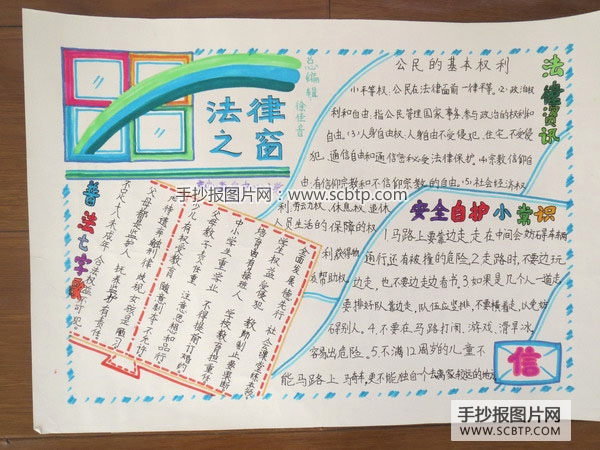 法律
之窗
总编辑
徐佳音
公民的基本权利
法律资讯
(1)平等权:公民在法律面前一律平等。(2)政治权
利和自由:指公民管理国家事务参与政治的权利和
自由。(3)人身自由权:人身自由不受侵犯,住宅不受侵
犯,通信自由和通信密秘受法律保护。(4)宗教信仰自
由:有信仰宗教和不信仰宗教的自由。(5)社会经济权
利:劳动权、休息权、退休
人员生活的保障的权
利获得物
帮助权
手抄报图片网:
www.scbtp.com
安全自护小常识
1.马路上要靠边走,走在中间会妨碍车辆
通行还有被撞的危险。2.走路时,不要边玩
边走,也不要边走边看书。3.如果是几个人一道走
要排好队靠边走,队伍应竖排,不要横着走,以免妨
碍别人。4.不要在马路打闹、游戏、滑旱冰,
容易出危险。5.不满12周岁的儿童不
能马路上骑车,更不能独自个去离家较远的地
信
普法七字歌
全面发展德先行
学生权益受侵犯
培育由有接班人
中小学生重学业
父母教子责任重
少儿有权受教育
父母都是监护人
不足十八未成年
社会课堂
教师制止最果断
学校教育担重任
不得提前订婚约
注意思想和品行
随意制本不允许
抚养监护有责任
合法权益
手抄报图片网
WWW.SCBTP.COM